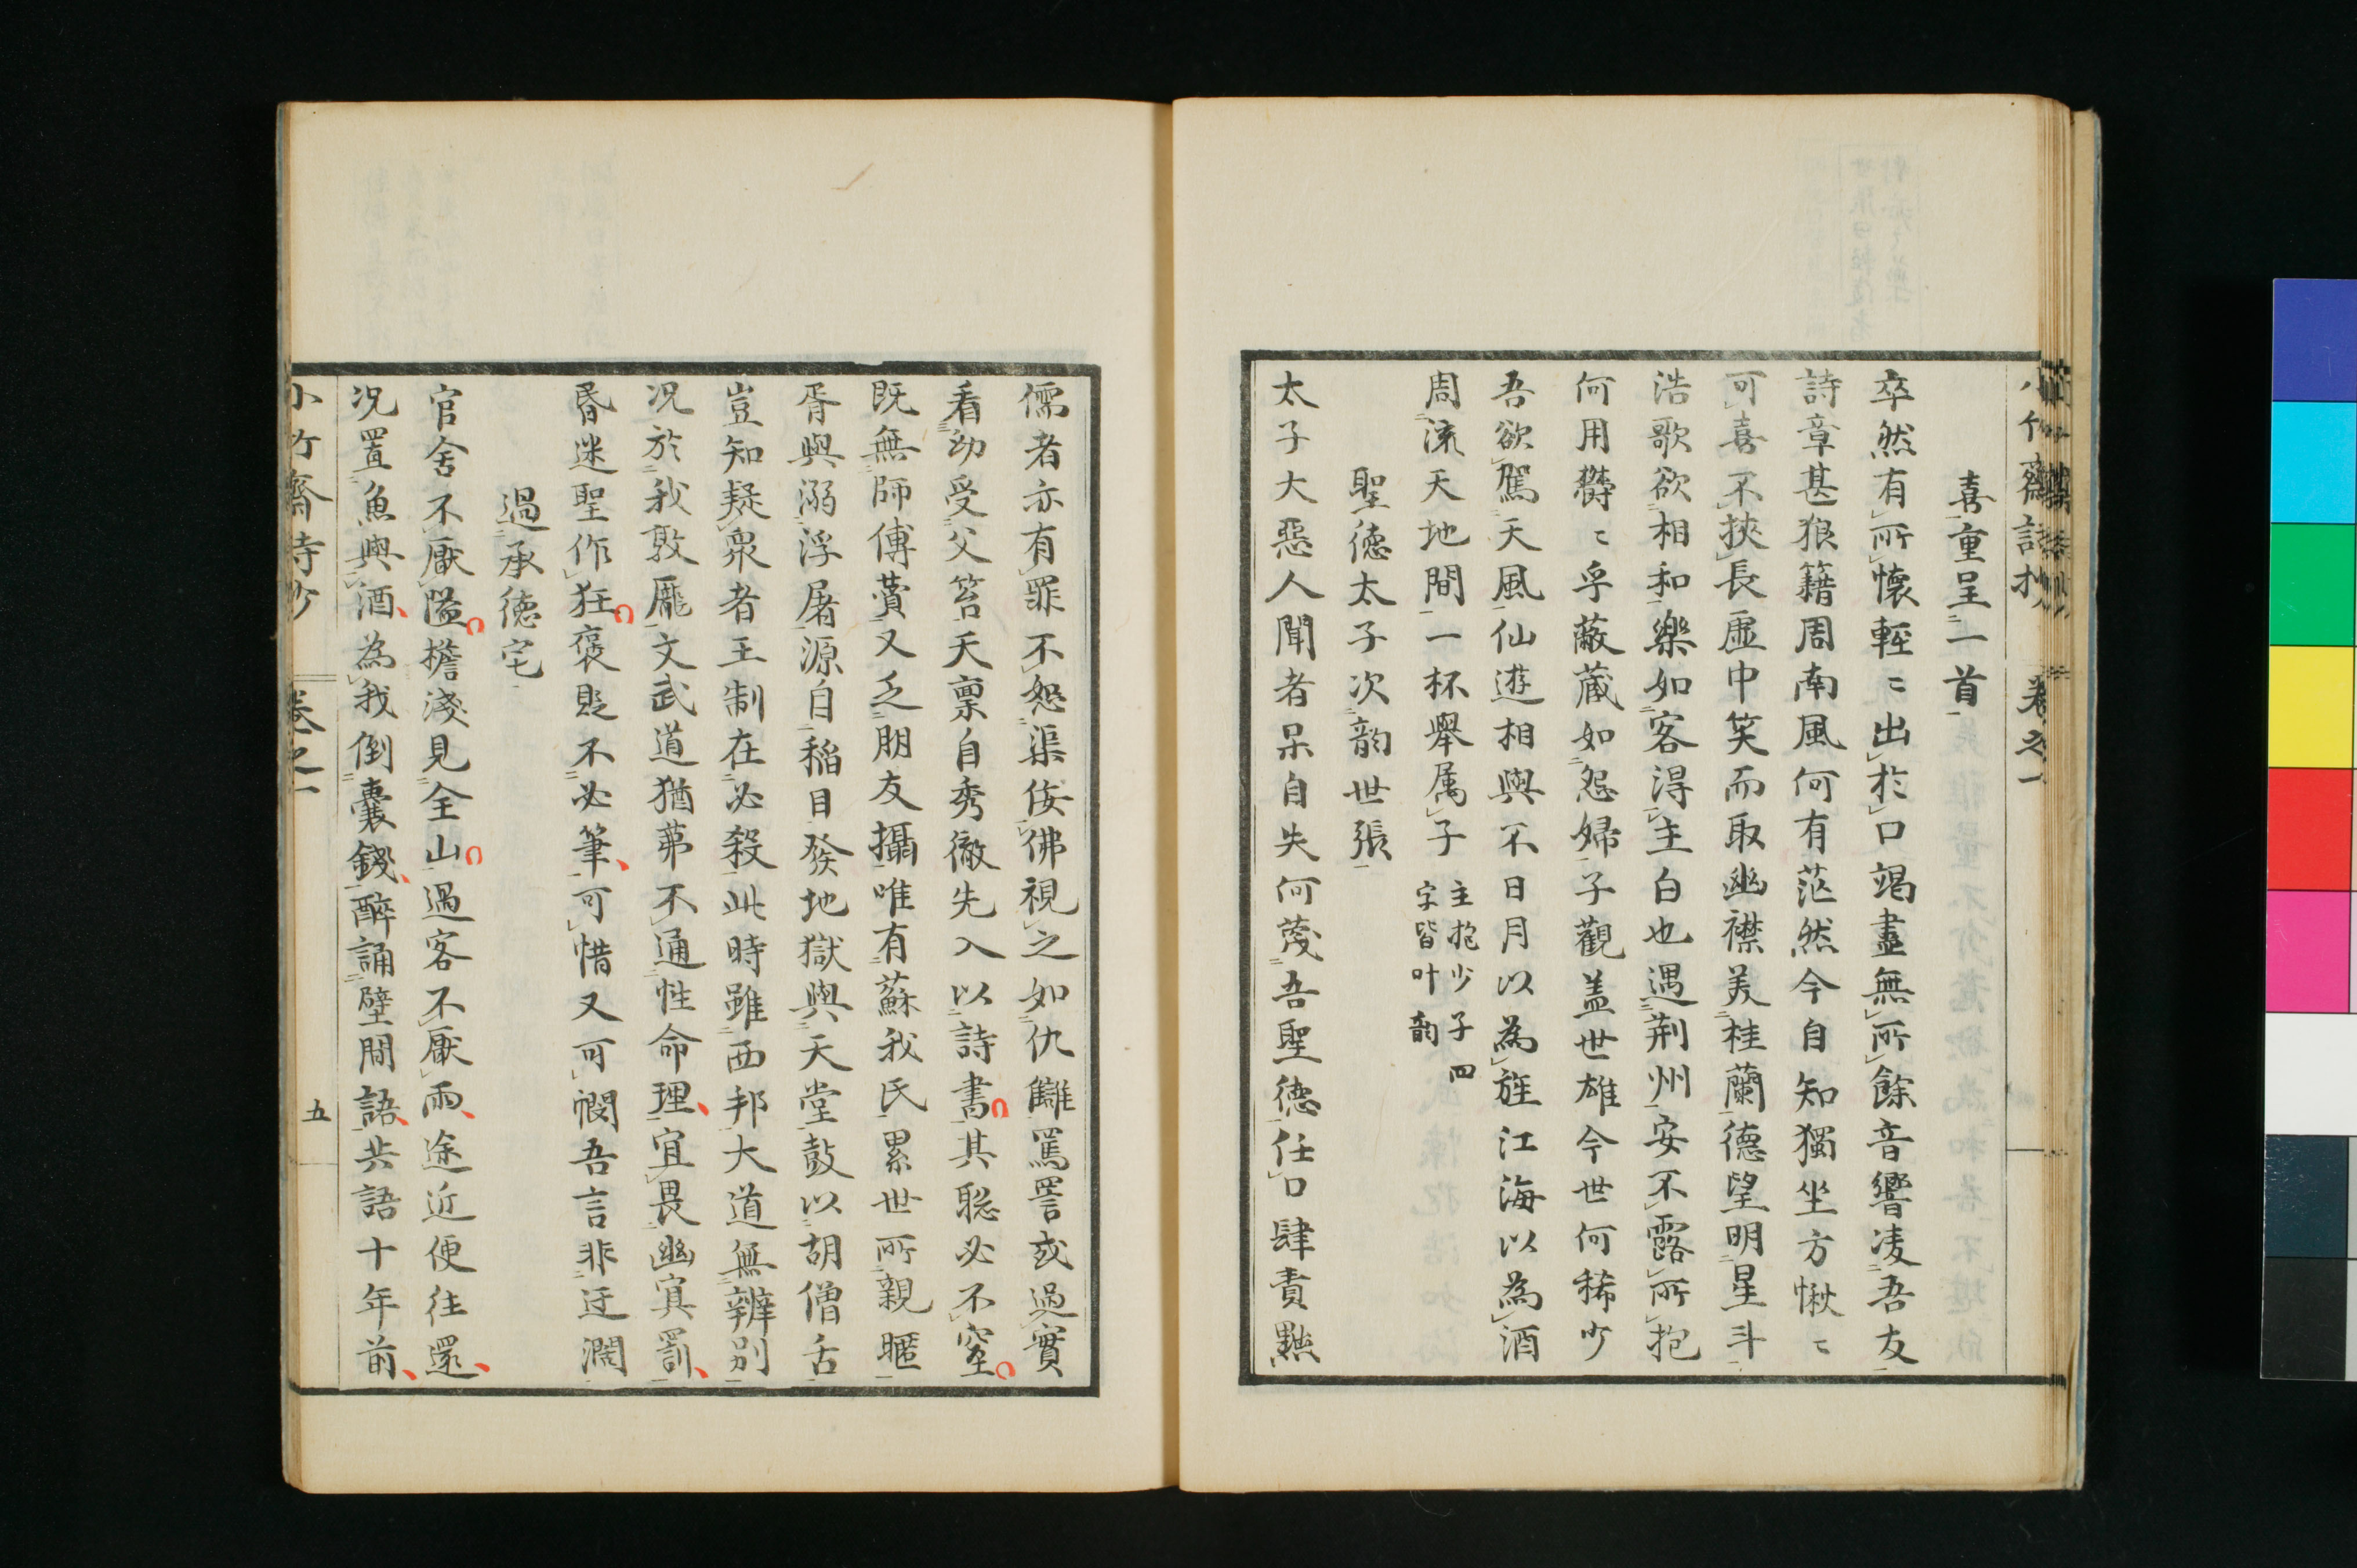 喜重呈一首
卒然有所懐輕〻出於口竭盡無所餘音響凌吾友
詩章甚狼籍周南風何有茫然今自知獨坐方愀〻
可喜不挾長虚中笑而取幽襟美桂蘭德望明星斗
浩歌欲相和樂如客得主白也遇荆州安不露所抱
何用欝〻乎蔽蔵如怨婦子觀盖世雄今世何稀少
吾欲駕天風仙遊相與不日月以為旌江海以為酒
周流天地間一杯舉属子 主抱少子四字皆叶韵
聖德太子次韵世張
太子大惡人聞者呆自失何蔑吾聖德任口肆責黜
儒者亦有罪不恕渠佞佛視之如仇讎罵詈或過實
看幼受父笞天禀自秀徹先入以詩書其聡必不窒
既無師傅賚又乏朋友攝唯有蘇我氏累世所親暱
胥與溺浮屠源自稲目發地獄與天堂鼓以胡僧舌
豈知疑衆者王制在必殺此時雖西邦大道無辨別
況於我敦厖文武道猶茀不通性命理宜畏幽寘罰
昏迷聖作狂褒貶不必筆可惜又可憫吾言非迂濶
過承德宅
官舍不厭隘檐淺見全山過客不厭雨途近便往還
況置魚與酒為我倒囊錢醉誦壁間語共語十年前
小竹齋詩抄
卷之一
五